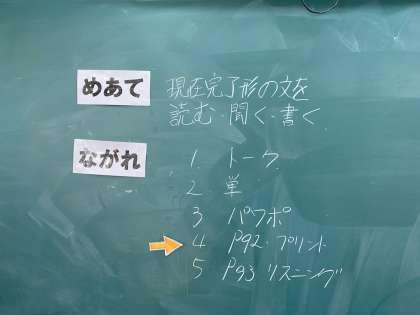 めあて 現在完了形の文を
読む・聞く・書く
ながれ
1 トーク
2 単
3 パフポ
4 P92・プリント
5 P93 リスニング